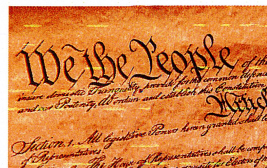 We the People of the
insure domestic Tranquility, provide for the common defence
and our Posterity, do ordain and establish this Constitution
Section. 1. All legislative Powers herein granted shall be
of Representatives.
The House of Representatives shall be comp